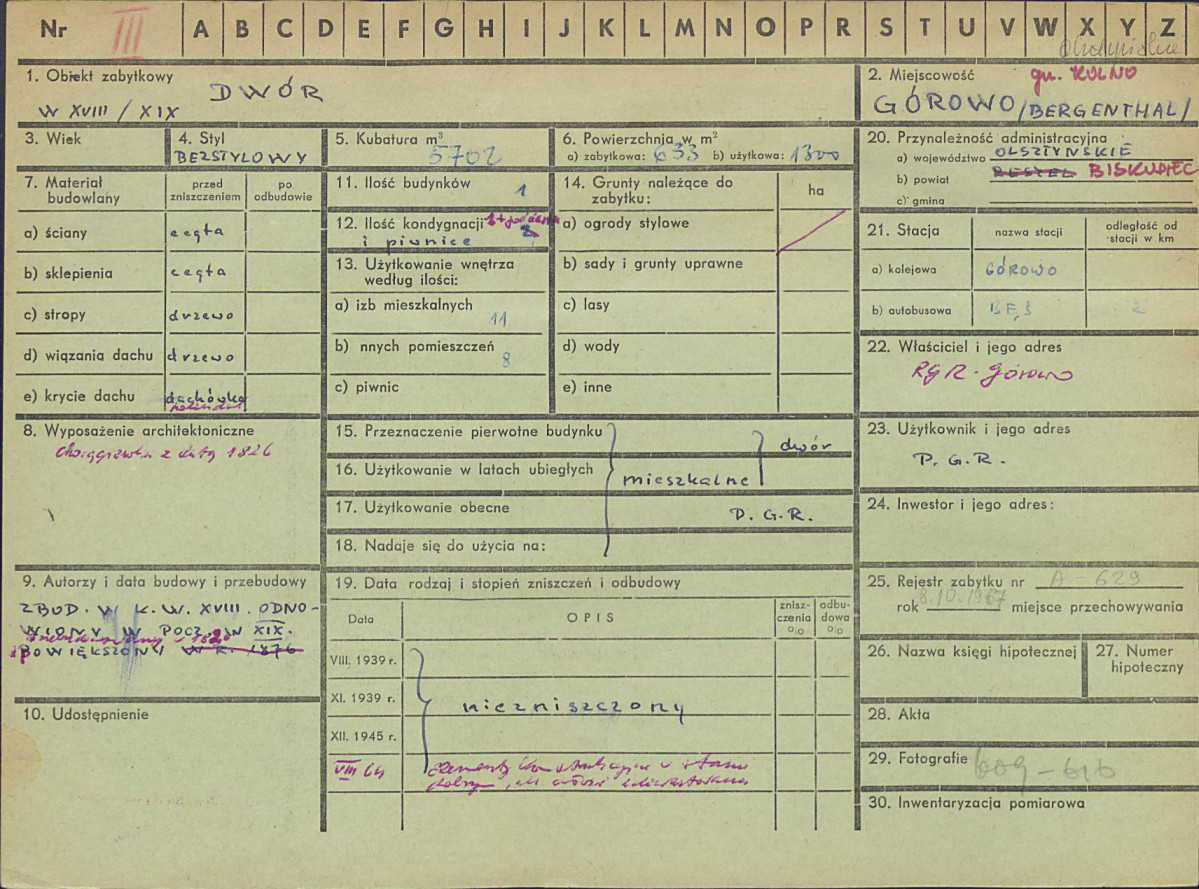 Nr III A B C D E F G H I J K L M N O P R S T U V W X Y Z
1. Obiekt zabytkowy
DWÓR
W XVIII / XIX
2. Miejscowość gm. KOLNO
GÓROWO /BERGENTHAL/
3. Wiek
4. Styl
BEZSTYLOWY
5. Kubatura m³
5702
6. Powierzchnia w m²
a) zabytkowa: 633 b) użytkowa: 1300
7. Materiał budowlany
przed zniszczeniem
po odbudowie
a) ściany cegła
b) sklepienia cegła
c) stropy drzewo
d) wiązania dachu drzewo
e) krycie dachu dachówka
8. Wyposażenie architektoniczne
Chorągiewka z datą 1826
9. Autorzy i data budowy i przebudowy
ZBUD. W K. W. XVIII. ODNO-
WIONY W POCZ. W XIX.
POWIĘKSZONY W R. 1876
10. Udostępnienie
11. Ilość budynków 1
12. Ilość kondygnacji 2
i piwnice
13. Użytkowanie wnętrza
według ilości:
a) izb mieszkalnych 11
b) nnych pomieszczeń 8
c) piwnic
14. Grunty należące do
zabytku:
ha
a) ogrody stylowe
b) sady i grunty uprawne
c) lasy
d) wody
e) inne
15. Przeznaczenie pierwotne budynku
dwór
16. Użytkowanie w latach ubiegłych
mieszkalne
17. Użytkowanie obecne P. G. R.
18. Nadaje się do użycia na:
19. Data rodzaj i stopień zniszczeń i odbudowy
Data
OPIS
znisz-
czenia
%
odbu-
dowa
%
VIII. 1939 r.
XI. 1939 r.
niezniszczony
XII. 1945 r.
VIII 64 elementy konstrukcyjne w stanie
20. Przynależność administracyjna
a) województwo OLSZTYŃSKIE
b) powiat RESZEL BISKUPIEC
c) gmina
21. Stacja
nazwa stacji
odległość od
stacji w km
a) kolejowa GÓROWO
b) autobusowa BĘŚ 2
22. Właściciel i jego adres
PGR - Górowo
23. Użytkownik i jego adres
P. G. R.
24. Inwestor i jego adres:
25. Rejestr zabytku nr A - 629
rok 8.10.1967 miejsce przechowywania
26. Nazwa księgi hipotecznej
27. Numer
hipoteczny
28. Akta
29. Fotografie 609 - 616
30. Inwentaryzacja pomiarowa